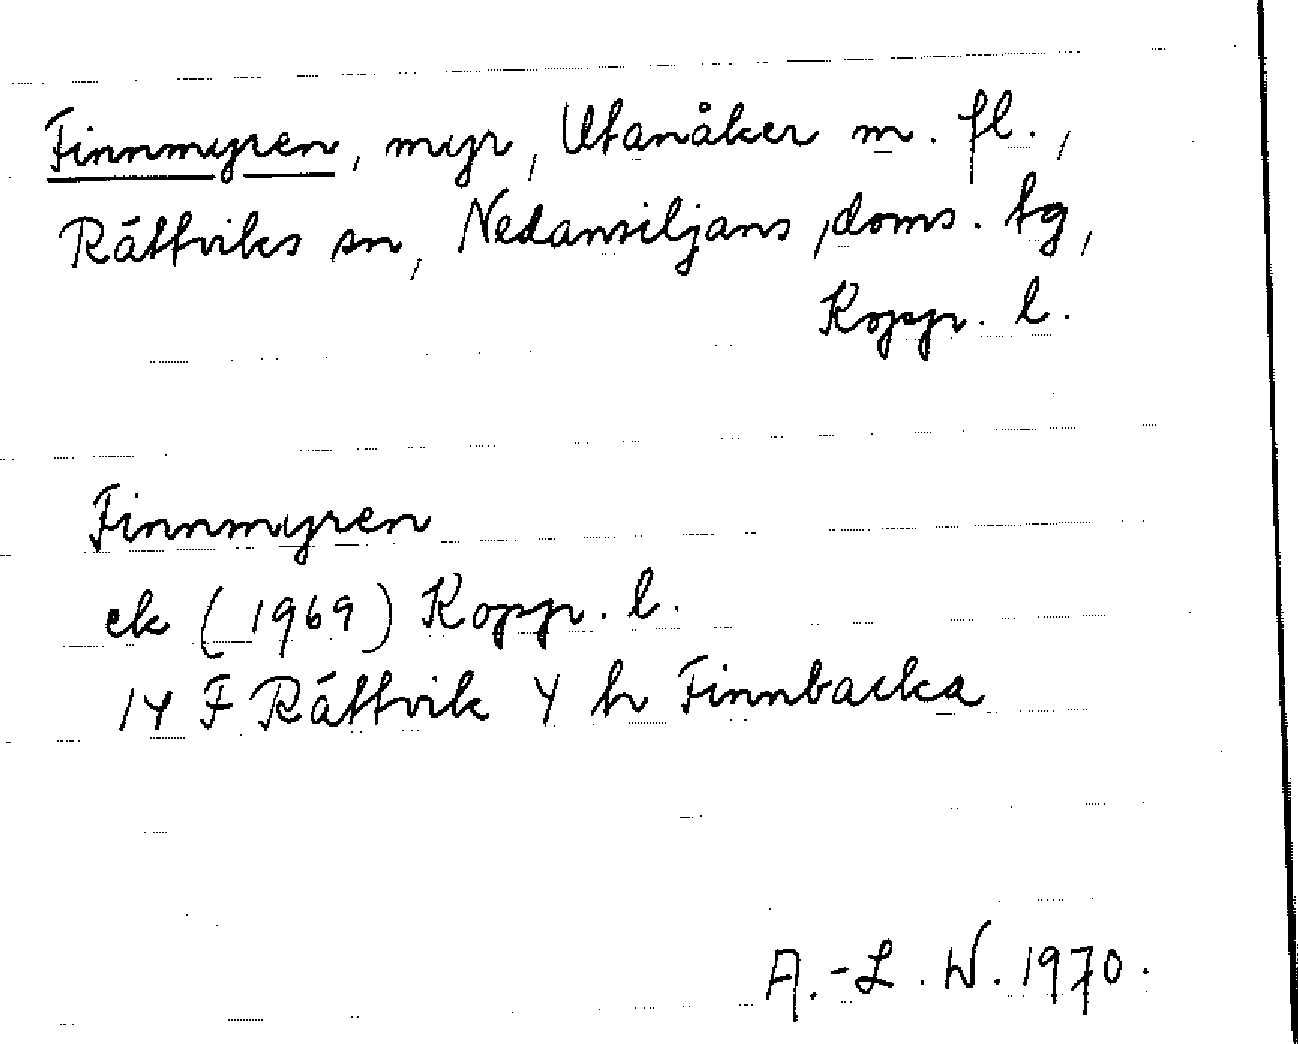 Finnmyren, myr, Utanåker m. fl.,
Rättviks sn, Nedansiljans doms. tg,
Koppr. l.
Finnmyren
ek (1969) Koppr. l.
14 F Rättvik 4 h Finnbacka
A.-L. W. 1970.